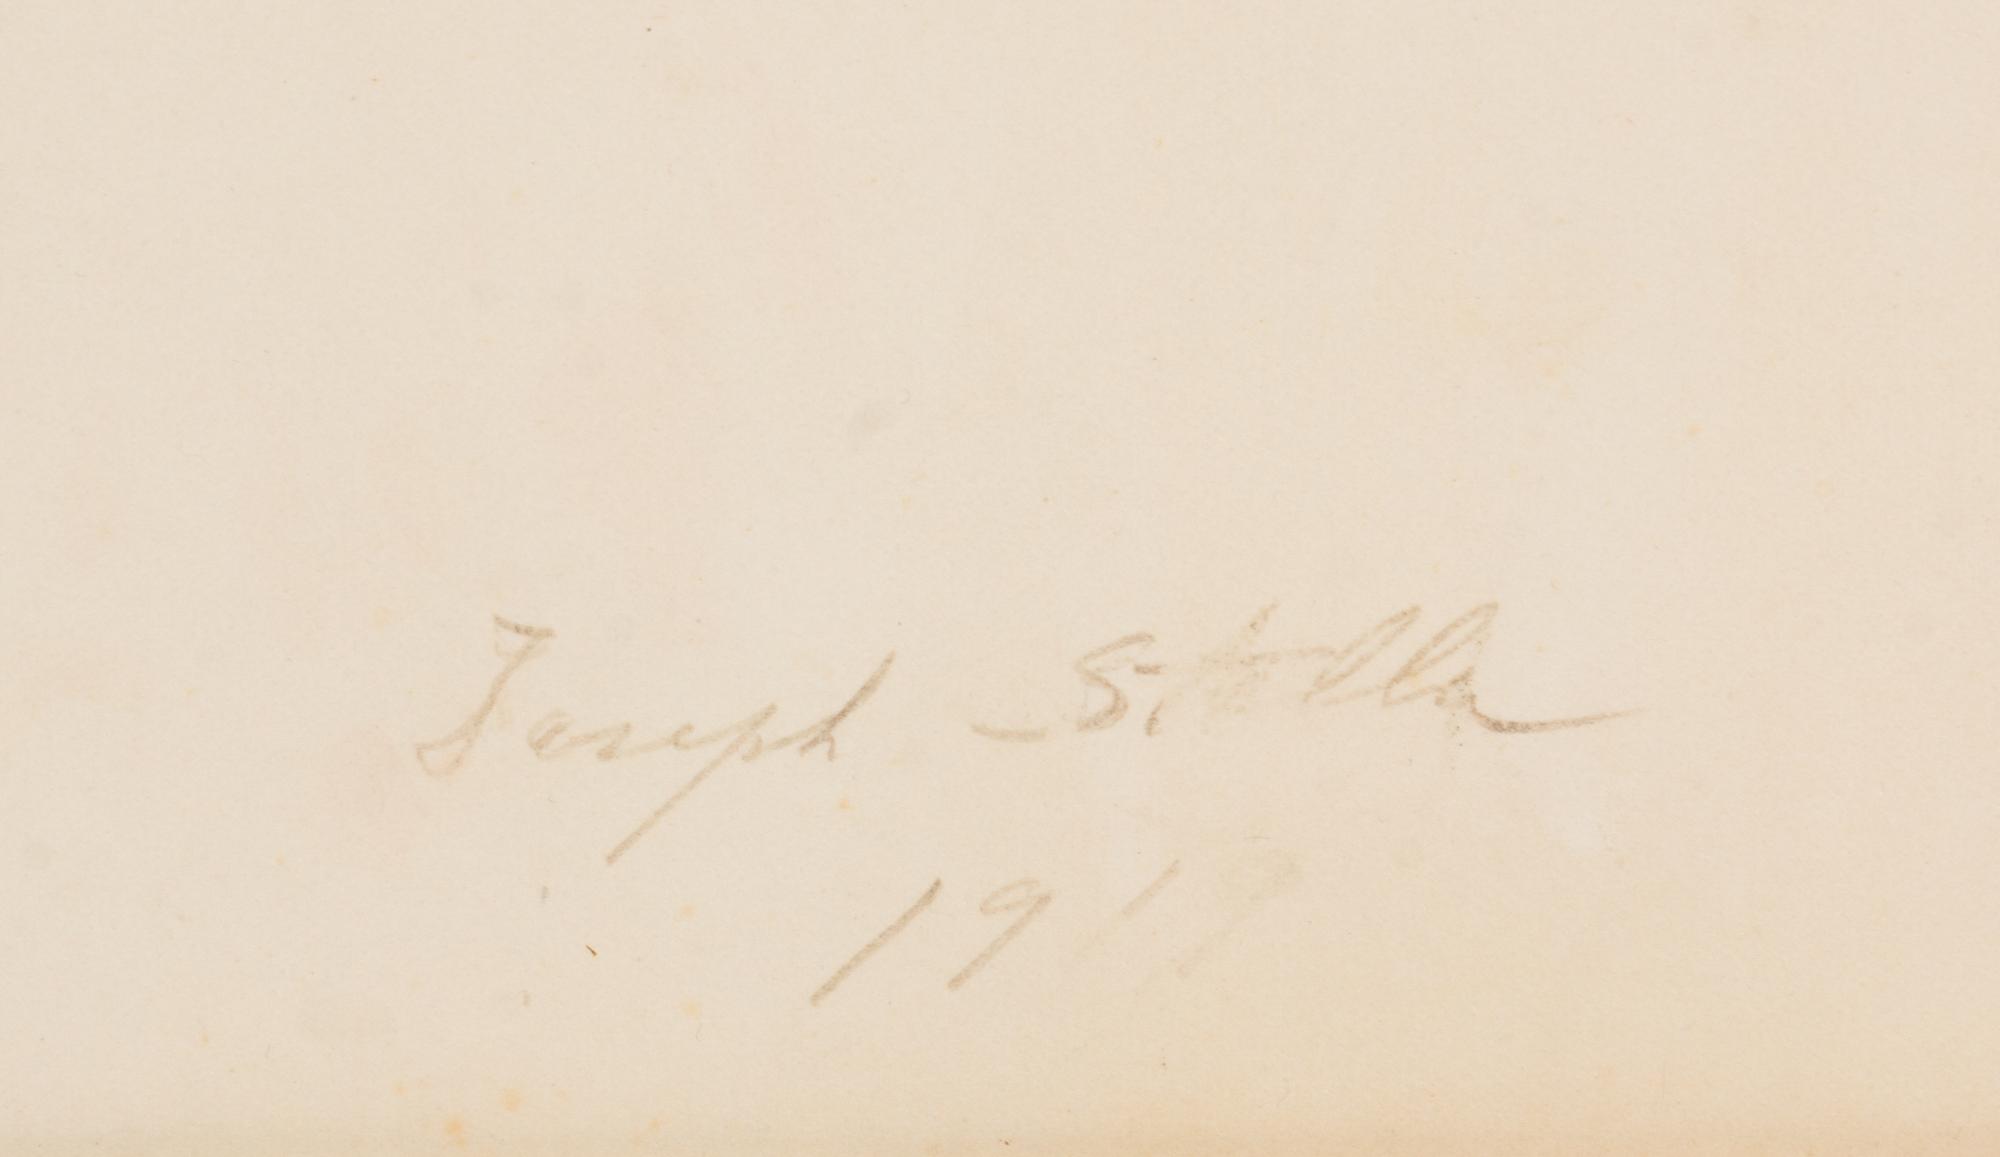 Joseph Stella
1919